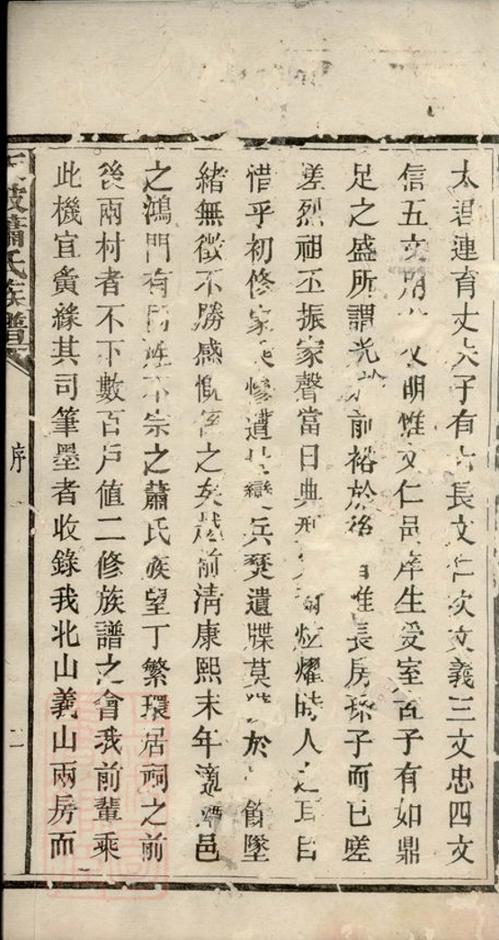 太君連育丈夫子有六長文仁次文義三文忠四文
信五文明六文明惟文仁邑庠生受室育子有如鼎
足之盛所謂光於前裕於後惟長房孫子而已嗟
嗟烈祖丕振家聲當日典炫耀時人之耳目
惜乎初修家慘遭變兵燹遺牒莫於餘墜
緒無徵不勝感慨之矣越前清康熙末年邑
之鴻門有同姓不宗之蕭氏族望丁繁環居祠之前
後兩村者不下數百戶值二修族譜之會我前輩乘
此機宜夤緣其司筆墨者收錄我北山義山兩房而
蕭氏族譜
序
二